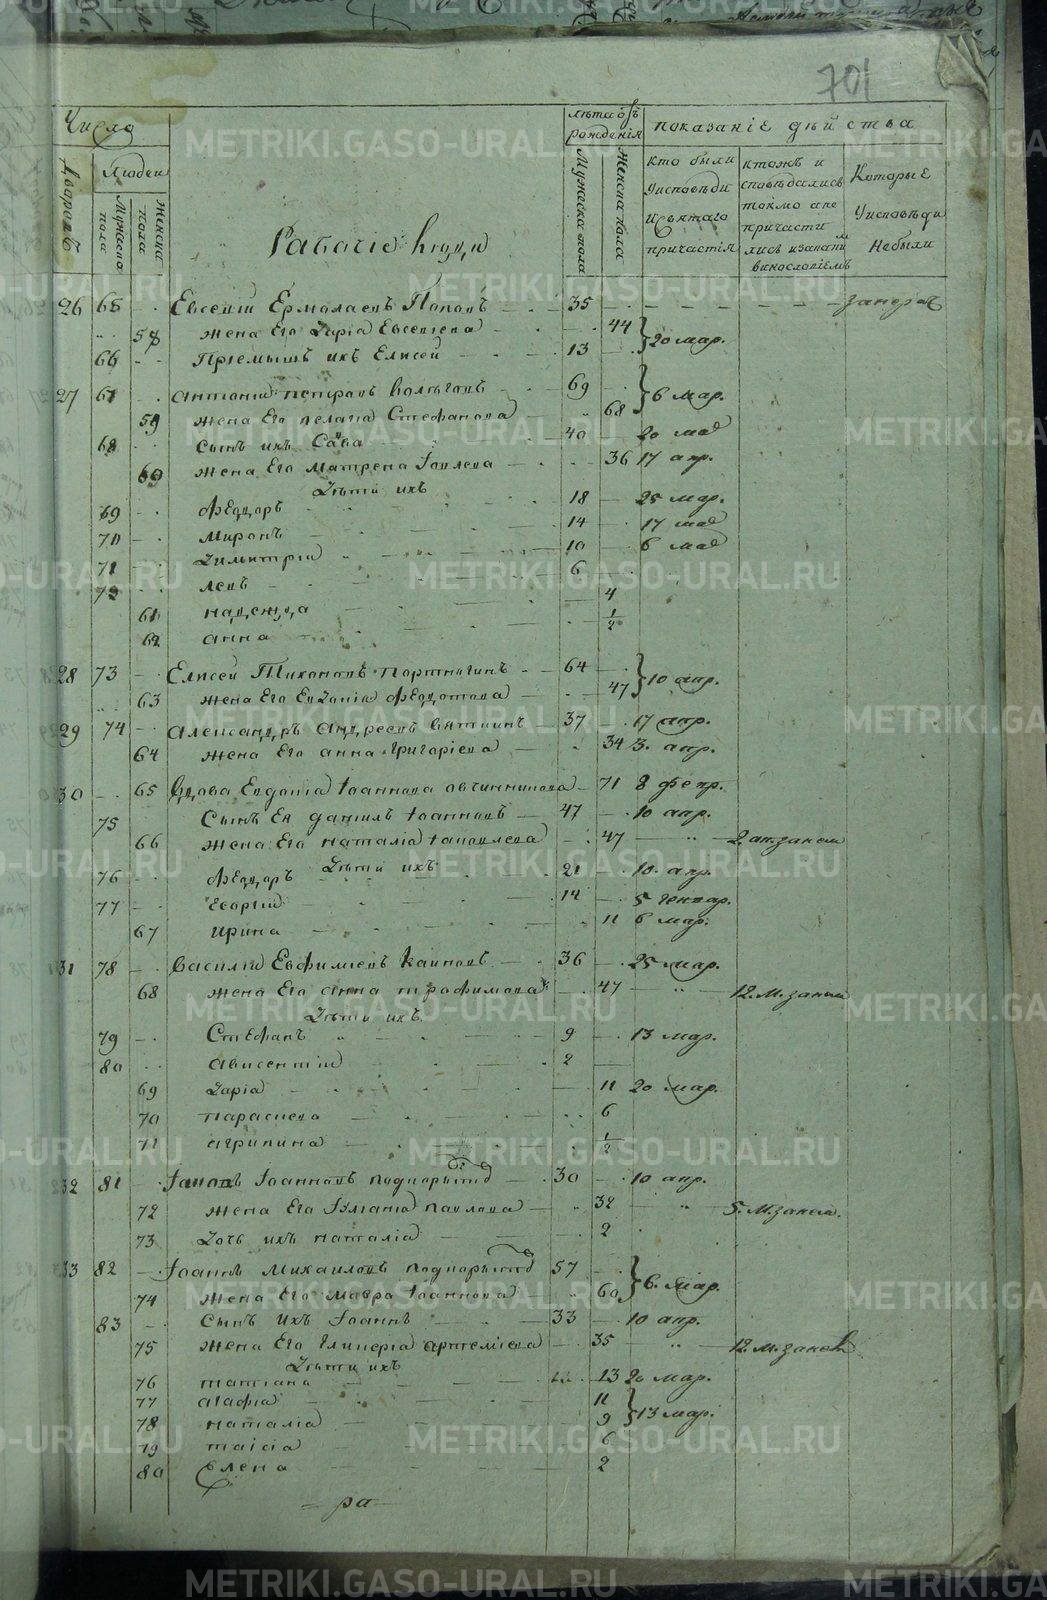 701
Число
Дворовъ
Людей
Мужеска пола
Женска пола
Рабочіе люди
Лѣта отъ рожденія
Мужеска пола
Женска пола
показаніе дѣйства
кто были у исповѣди и святаго причастія
ктожъ и сповѣдались токмо а не причасти лись и за каким винословіемъ
Которые у исповѣди не были
26 65 - Евсевій Ермолаевъ Поповъ 35 - занеради
жена Его Дарія Евсевіева 44 } 20 мар.
66 - Пріемышъ ихъ Елисей 13
27 67 - Антоній петровъ 69 } 6 мар.
59 жена Его пелагія Стефанова 68
68 - сынъ ихъ Сава 40 20 маія
60 жена Его матрена Іовлева 36 17 апр.
Дѣти ихъ
69 - Ѳеодоръ 18 - 25 мар.
70 - миронъ 14 - 17 маія
71 - Димитрій 10 - 6 маія
72 - левъ 6
61 надежда 4
62 анна 1/2
28 73 - Елисей Тихоновъ портнягинъ 64 } 10 апр.
63 жена Его Евдокія Ѳеодотова 47
29 74 - Александръ Андреевъ вяткинъ 37 - 17 апр.
64 жена Его анна григоріева 34 3. апр.
30 - 65 вдова Евдокія Іоаннова овчинникова 71 8 февр.
75 Сынъ Ея даніилъ Іоанновъ 47 - 10 апр.
66 жена Его наталія Іаковлева 47 - 2. ап. занем
Дѣти ихъ
76 - Ѳеодоръ 21 - 10. апр.
77 - Егоргій 14 - 5 генвар.
67 ирина 11 6 мар.
31 78 - василій Евфиміевъ каиновъ 36 - 25 мар.
68 жена Его анна трофимова 47 - 12. М. занем
Дѣти ихъ
79 - Стефанъ 9 - 13 мар.
80 - авксентій 2
69 Дарія 11 20 мар.
70 параскева 6
71 агрипина 1/2
32 81 - Іаковъ Іоанновъ подкорытовъ 30 - 10 апр.
72 жена Его Іуліанія павлова 32 - 5. М. занем.
73 Дочь ихъ наталія 2
33 82 - Іоаннъ михаиловъ подкорытовъ 57 } 6. мар.
74 жена Его мавра Іоаннова 60
83 - сынъ ихъ Іоаннъ 33 - 10 апр.
75 жена Его гликерія артеміева 35 - 12. М. занем
Дѣти ихъ
76 татіана 13 20 мар.
77 агафія 11 } 13 мар.
78 наталія 9
79 таисія 6
80 елена 2
ра
METRIKI.GASO-URAL.RU